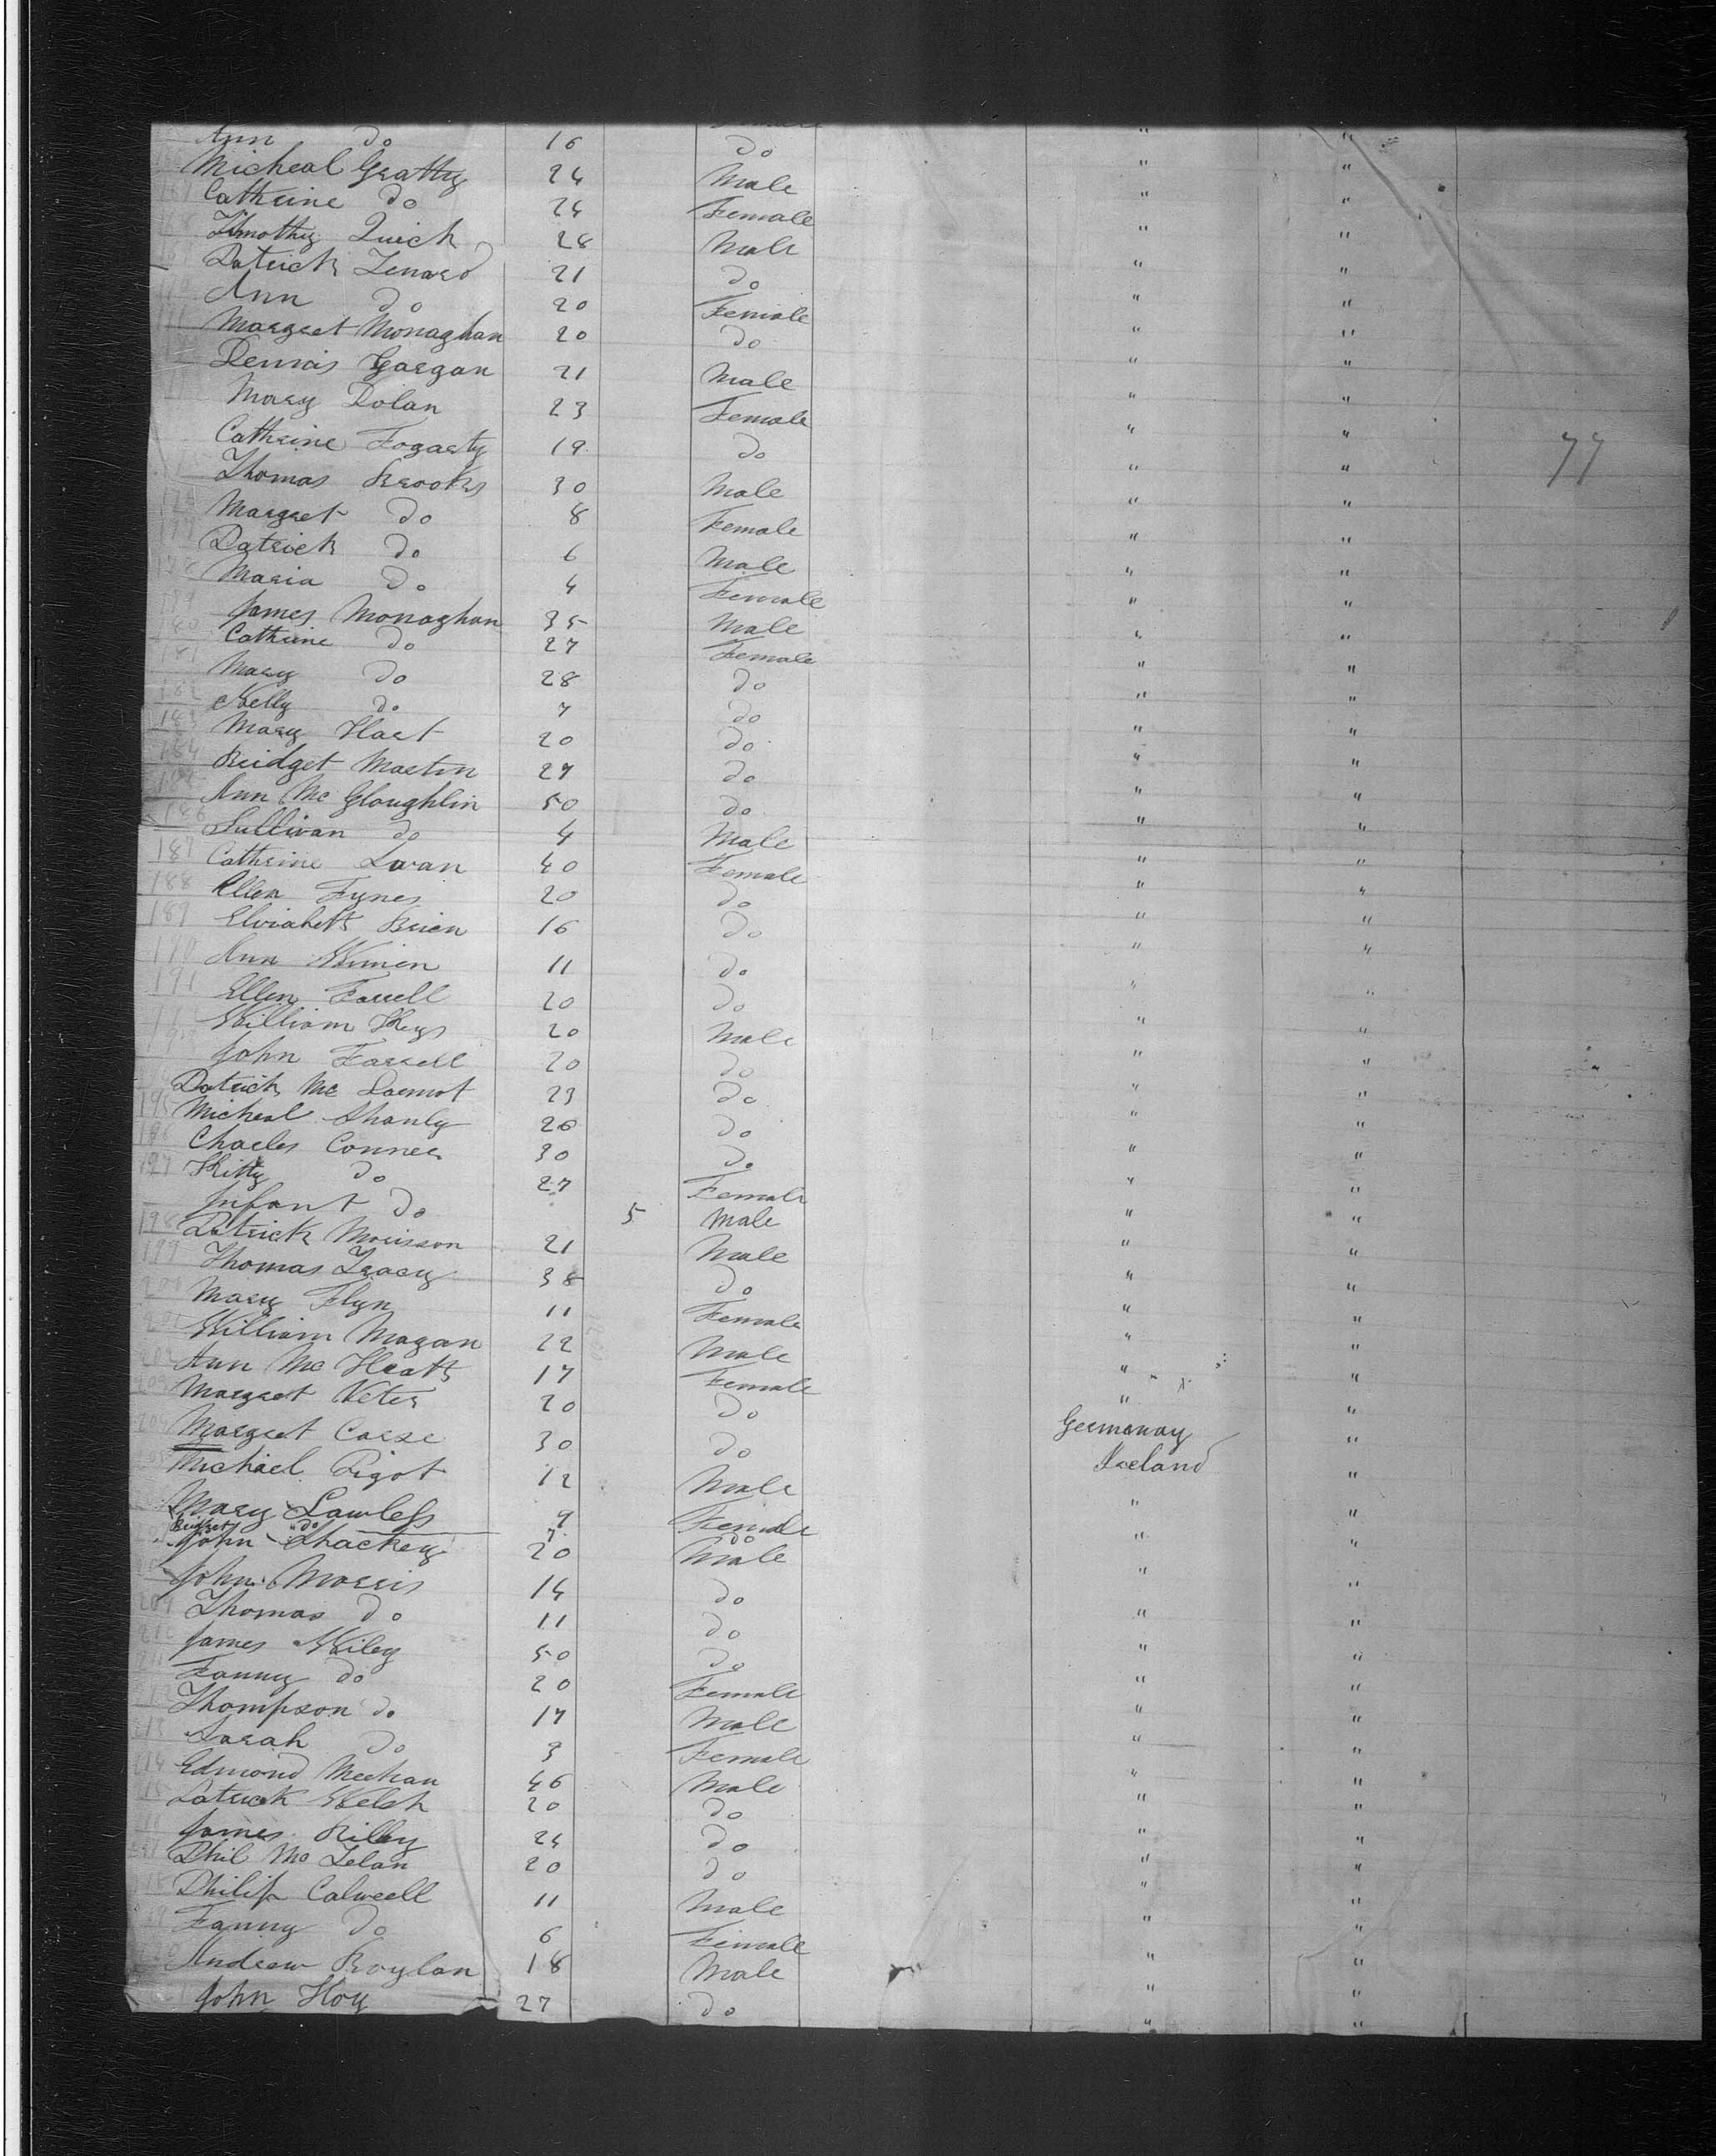 Ann do 16 do " "
Micheal Gratty 24 Male " "
Cathrine do 24 Female " "
Timothy Quick 28 Male " "
Patrick Lenard 21 do " "
Ann do 20 Female " "
Margret Monaghan 20 do " "
Dennis Gargan 21 Male " "
Mary Dolan 23 Female " "
Cathrine Fogarty 19 do " " 77
Thomas Brooks 30 Male " "
176 Margret do 8 Female " "
177 Patrick do 6 Male " "
178 Maria do 4 Female " "
179 James Monaghan 35 Male " "
180 Cathrine do 27 Female " "
181 Mary do 28 do " "
182 Nelly do 7 do " "
183 Mary Hart 20 do " "
184 Bridget Martin 27 do " "
185 Ann Mc Gloughlin 50 do " "
186 Sullivan do 4 Male " "
187 Cathrine Swan 40 Female " "
188 Ellen Fynes 20 do " "
189 Brien 16 do " "
190 Ann 11 do " "
191 Ellen Farrell 20 do " "
William Keys 20 Male " "
John Farrell 20 do " "
Patrick Mc Darmot 23 do " "
195 Micheal Shanly 26 do " "
196 Charles Conner 30 do " "
197 Kitty do 27 Female " "
Infant do 5 Male " "
198 Patrick Morisson 21 Male " "
199 Thomas Tracey 38 do " "
200 Mary Flyn 11 Female " "
201 William Magan 22 Male " "
202 Ann Mc Heath 17 Female " "
203 Margret 20 do " "
204 Margret Carse 30 do Germanay "
Michael Pigot 12 Male Ireland "
Mary Lawless 9 Female " "
Bridget "do" 7 do
John Shackey 20 Male " "
John Morris 14 do " "
209 Thomas do 11 do " "
210 James Wiley 50 do " "
211 Fanny do 20 Female " "
212 Thompson do 17 Male " "
213 Sarah do 3 Female " "
214 Edmond Meehan 46 Male " "
215 Patrick Welsh 20 do " "
James Rilley 24 do " "
Phil Mc Lelan 20 do " "
Philip Calwell 11 Male " "
Fanny do 6 Female " "
Andrew Boylan 18 Male " "
John Hoy 27 do " "